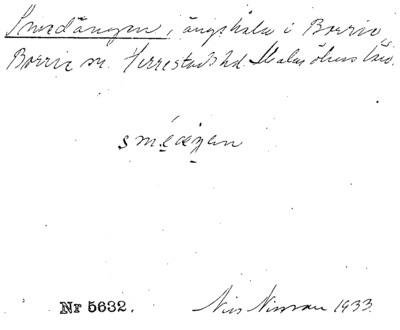 Smedängen, ängskala i Borrie
Borrie sn. Herrestads hd. Malmöhus län.
smeängen
Nr 5632.
Nils Nilsson 1933.